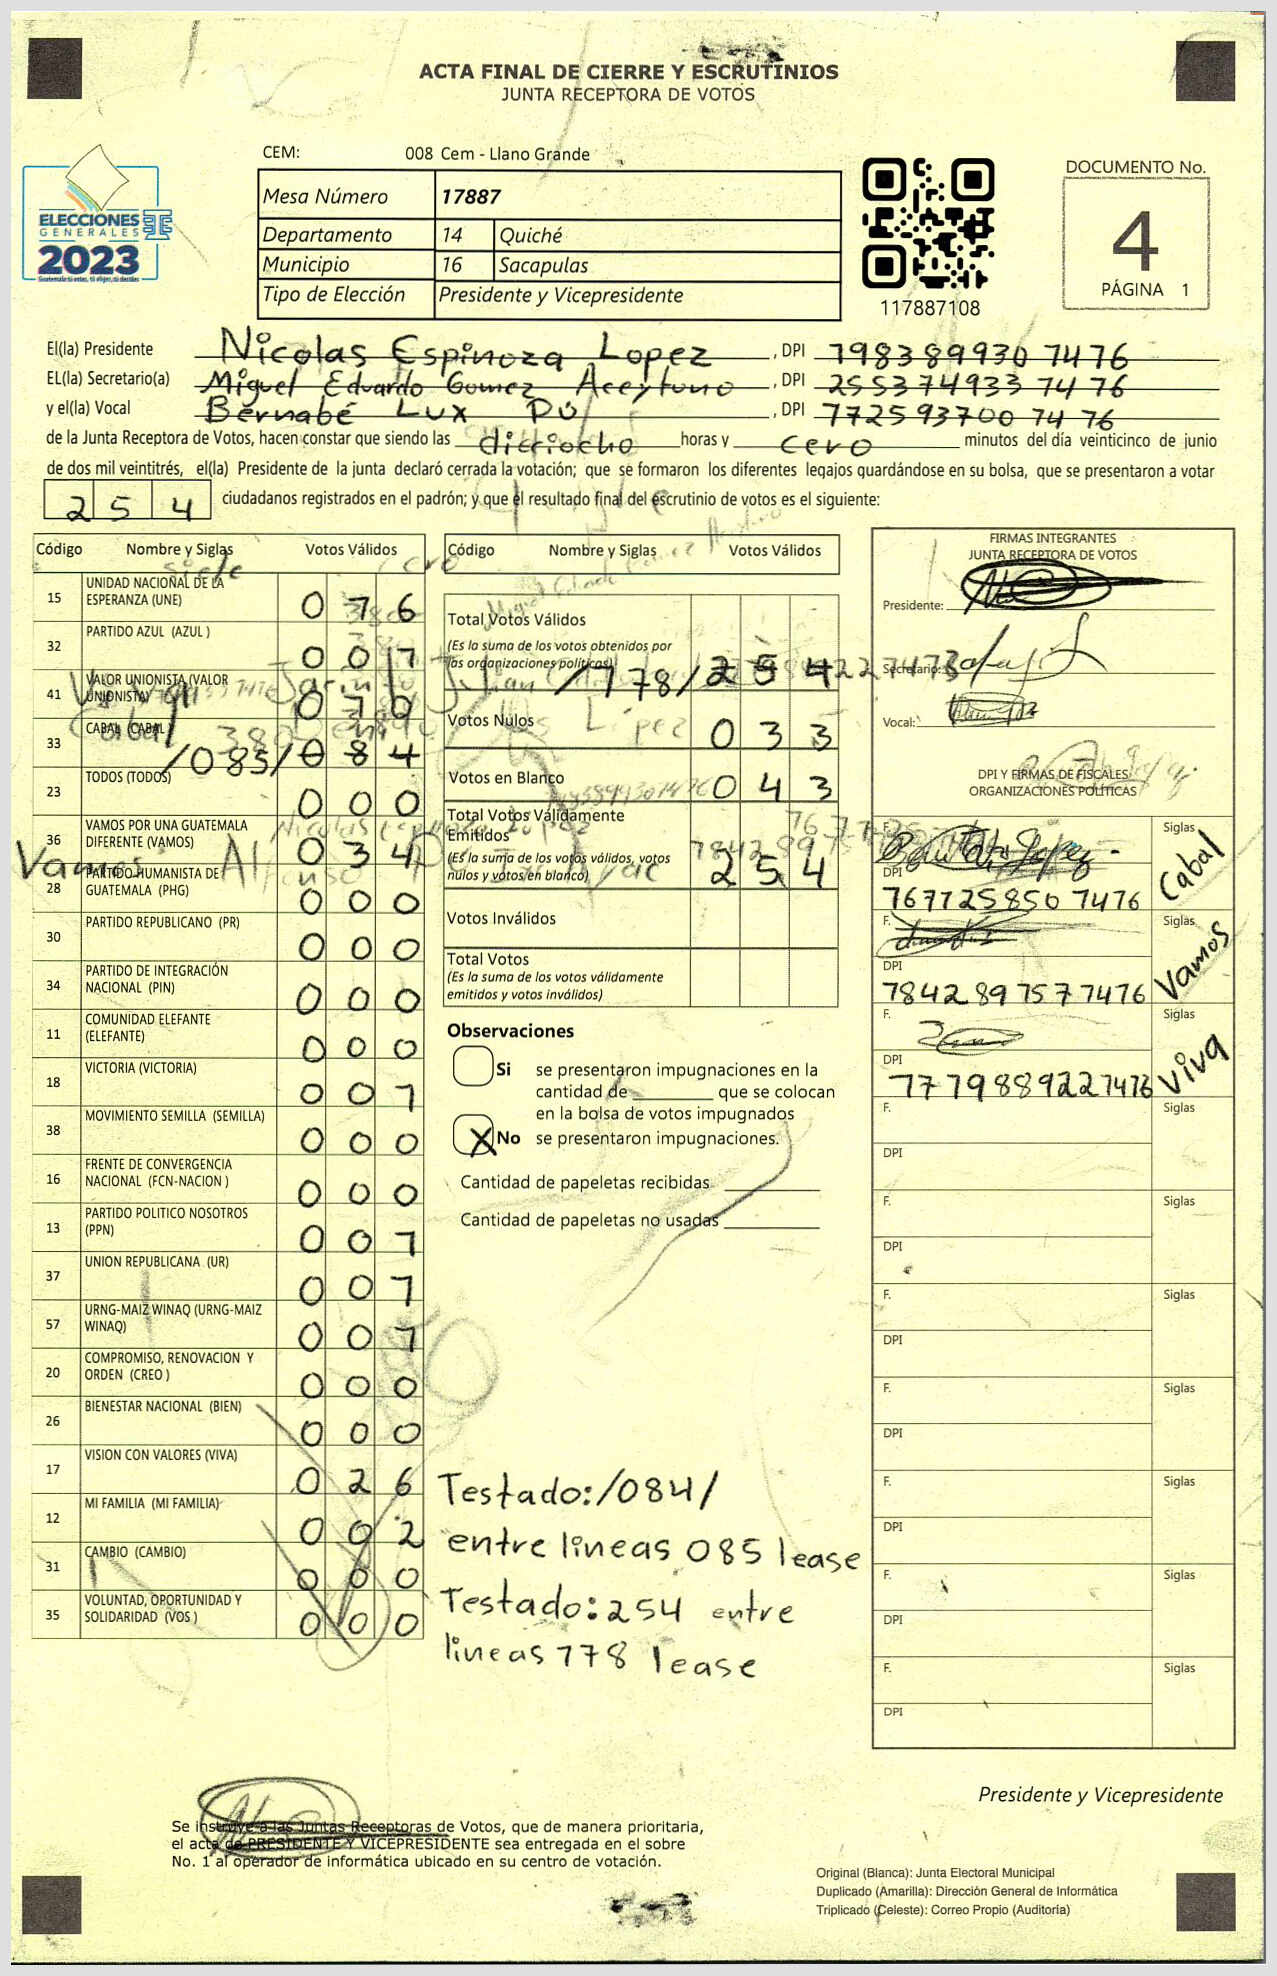 ACTA FINAL DE CIERRE Y ESCRUTINIOS
JUNTA RECEPTORA DE VOTOS
CEM: 008 Cem - Llano Grande
ELECCIONES
GENERALES
2023
Mesa Número 17887
Departamento 14 Quiché
Municipio 16 Sacapulas
Tipo de Elección Presidente y Vicepresidente
117887108
DOCUMENTO No.
4
PÁGINA 1
El(la) Presidente Nicolas Espinoza Lopez , DPI 198389930 1416
EL(la) Secretario(a) Miguel Eduardo Gomez Aceytuno , DPI 255374933 1416
y el(la) Vocal Bernabé Lux Pú , DPI 172593700 1416
de la Junta Receptora de Votos, hacen constar que siendo las dieciocho horas y cero minutos del día veinticinco de junio
de dos mil veintitrés, el(la) Presidente de la junta declaró cerrada la votación; que se formaron los diferentes legajos guardándose en su bolsa, que se presentaron a votar
254 ciudadanos registrados en el padrón; y que el resultado final del escrutinio de votos es el siguiente:
Código Nombre y Siglas Votos Válidos
15 UNIDAD NACIONAL DE LA ESPERANZA (UNE) 0 1 6
32 PARTIDO AZUL (AZUL ) 0 0 1
41 VALOR UNIONISTA (VALOR UNIONISTA) 0 1 0
33 CABAL (CABAL ) /085/ 0 8 4
23 TODOS (TODOS) 0 0 0
36 VAMOS POR UNA GUATEMALA DIFERENTE (VAMOS) 0 3 4
28 PARTIDO HUMANISTA DE GUATEMALA (PHG) 0 0 0
30 PARTIDO REPUBLICANO (PR) 0 0 0
34 PARTIDO DE INTEGRACIÓN NACIONAL (PIN) 0 0 0
11 COMUNIDAD ELEFANTE (ELEFANTE) 0 0 0
18 VICTORIA (VICTORIA) 0 0 1
38 MOVIMIENTO SEMILLA (SEMILLA) 0 0 0
16 FRENTE DE CONVERGENCIA NACIONAL (FCN-NACION ) 0 0 0
13 PARTIDO POLITICO NOSOTROS (PPN) 0 0 1
37 UNION REPUBLICANA (UR) 0 0 1
57 URNG-MAIZ WINAQ (URNG-MAIZ WINAQ) 0 0 1
20 COMPROMISO, RENOVACION Y ORDEN (CREO ) 0 0 0
26 BIENESTAR NACIONAL (BIEN) 0 0 0
17 VISION CON VALORES (VIVA) 0 2 6
12 MI FAMILIA (MI FAMILIA) 0 0 2
31 CAMBIO (CAMBIO) 0 0 0
35 VOLUNTAD, OPORTUNIDAD Y SOLIDARIDAD (VOS ) 0 0 0
Código Nombre y Siglas Votos Válidos
Total Votos Válidos
(Es la suma de los votos obtenidos por
las organizaciones políticas) /178/ 2 5 4
Votos Nulos 0 3 3
Votos en Blanco 0 4 3
Total Votos Válidamente
Emitidos
(Es la suma de los votos válidos, votos
nulos y votos en blanco) 2 5 4
Votos Inválidos
Total Votos
(Es la suma de los votos válidamente
emitidos y votos inválidos)
Observaciones
Si se presentaron impugnaciones en la
cantidad de que se colocan
en la bolsa de votos impugnados
X No se presentaron impugnaciones.
Cantidad de papeletas recibidas
Cantidad de papeletas no usadas
Testado:/084/
entre lineas 085 lease
Testado: 254 entre
lineas 178 lease
FIRMAS INTEGRANTES
JUNTA RECEPTORA DE VOTOS
Presidente:
Secretario:
Vocal:
DPI Y FIRMAS DE FISCALES
ORGANIZACIONES POLÍTICAS
F. Siglas Cabal
DPI 167125850 1416
F. Siglas Vamos
DPI 184289157 1416
F. Siglas Viva
DPI 1719889221416
F. Siglas
DPI
F. Siglas
DPI
F. Siglas
DPI
F. Siglas
DPI
F. Siglas
DPI
F. Siglas
DPI
F. Siglas
DPI
Presidente y Vicepresidente
Se instruye a las Juntas Receptoras de Votos, que de manera prioritaria,
el acta de PRESIDENTE Y VICEPRESIDENTE sea entregada en el sobre
No. 1 al operador de informática ubicado en su centro de votación.
Original (Blanca): Junta Electoral Municipal
Duplicado (Amarilla): Dirección General de Informática
Triplicado (Celeste): Correo Propio (Auditoría)